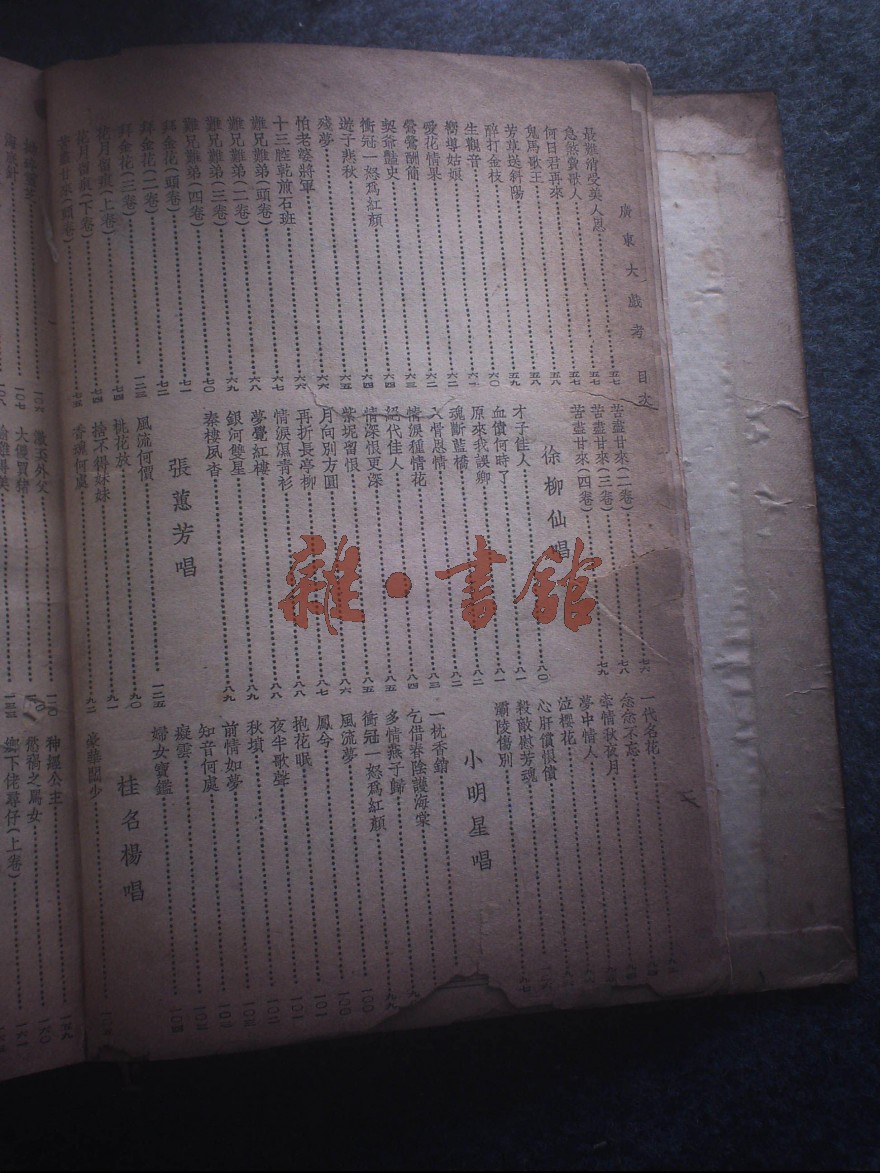 廣東大戲考 目次
最難消受美人恩 五七
急煞賣歌人 五七
何日君再來 五七
鬼馬歌王 五八
芳草送斜陽 五九
醉打金枝 六〇
生觀音 六一
嚮導姑娘 六二
愛花情果 六二
鶯鶯酬簡 六三
契爺豔史 六四
衝冠一怒為紅顏 六四
遊子悲秋 六五
殘夢 六六
怕老婆將軍 六六
十三腔乾煎石班 六七
難兄難弟(頭卷) 六八
難兄難弟(二卷) 六九
難兄難弟(三卷) 七〇
難兄難弟(四卷) 七一
拜金花(頭卷) 七二
拜金花(二卷)
拜金花(三卷) 七四
花月留痕(上卷) 七四
花月留痕(下卷)
苦盡甘來(頭卷) 七五
苦盡甘來(二卷) 七六
苦盡甘來(三卷) 七八
苦盡甘來(四卷) 七九
徐柳仙唱
才子佳人 八〇
血債何時了 八一
原來我誤卿 八一
魂斷藍橋 八二
入骨恩情 八二
情淚種情花 八四
絕代佳人 八四
情深恨更深 八五
紫坭留恨 八六
月向別方圓 八七
再折長亭柳 八七
情淚濕青衫 八八
夢覺紅樓 八九
銀河雙星 八九
秦樓夙杳 八九
張蕙芳唱
風流何價 一二五
桃花放 九〇
捨不得妹妹 九一
香魂何處 九二
一代名花
念念不忘
牽情秋夜月
夢中情人
泣櫻花
心肝償恨債
殺敵慰芳魂
灞陵傷別 九七
小明星唱
一枕香銷
乞借春陰護海棠
多情燕子歸
衝冠一怒為紅顏 一〇〇
風流夢 一〇〇
鳳今 一〇一
抱花眠 一〇一
夜半歌聲 一〇二
秋墳 一〇二
前情如夢
知音何處
癡雲
婦女寶鑑 一〇四
桂名楊唱
豪華闊少
一〇六
海底針 一〇七
一〇八
激盃外父 一二〇
大傻買豬
神經公主 一五九
慾禍之馬女 一六〇
鄉下佬尋仔(上卷) 一六一
雜·書館